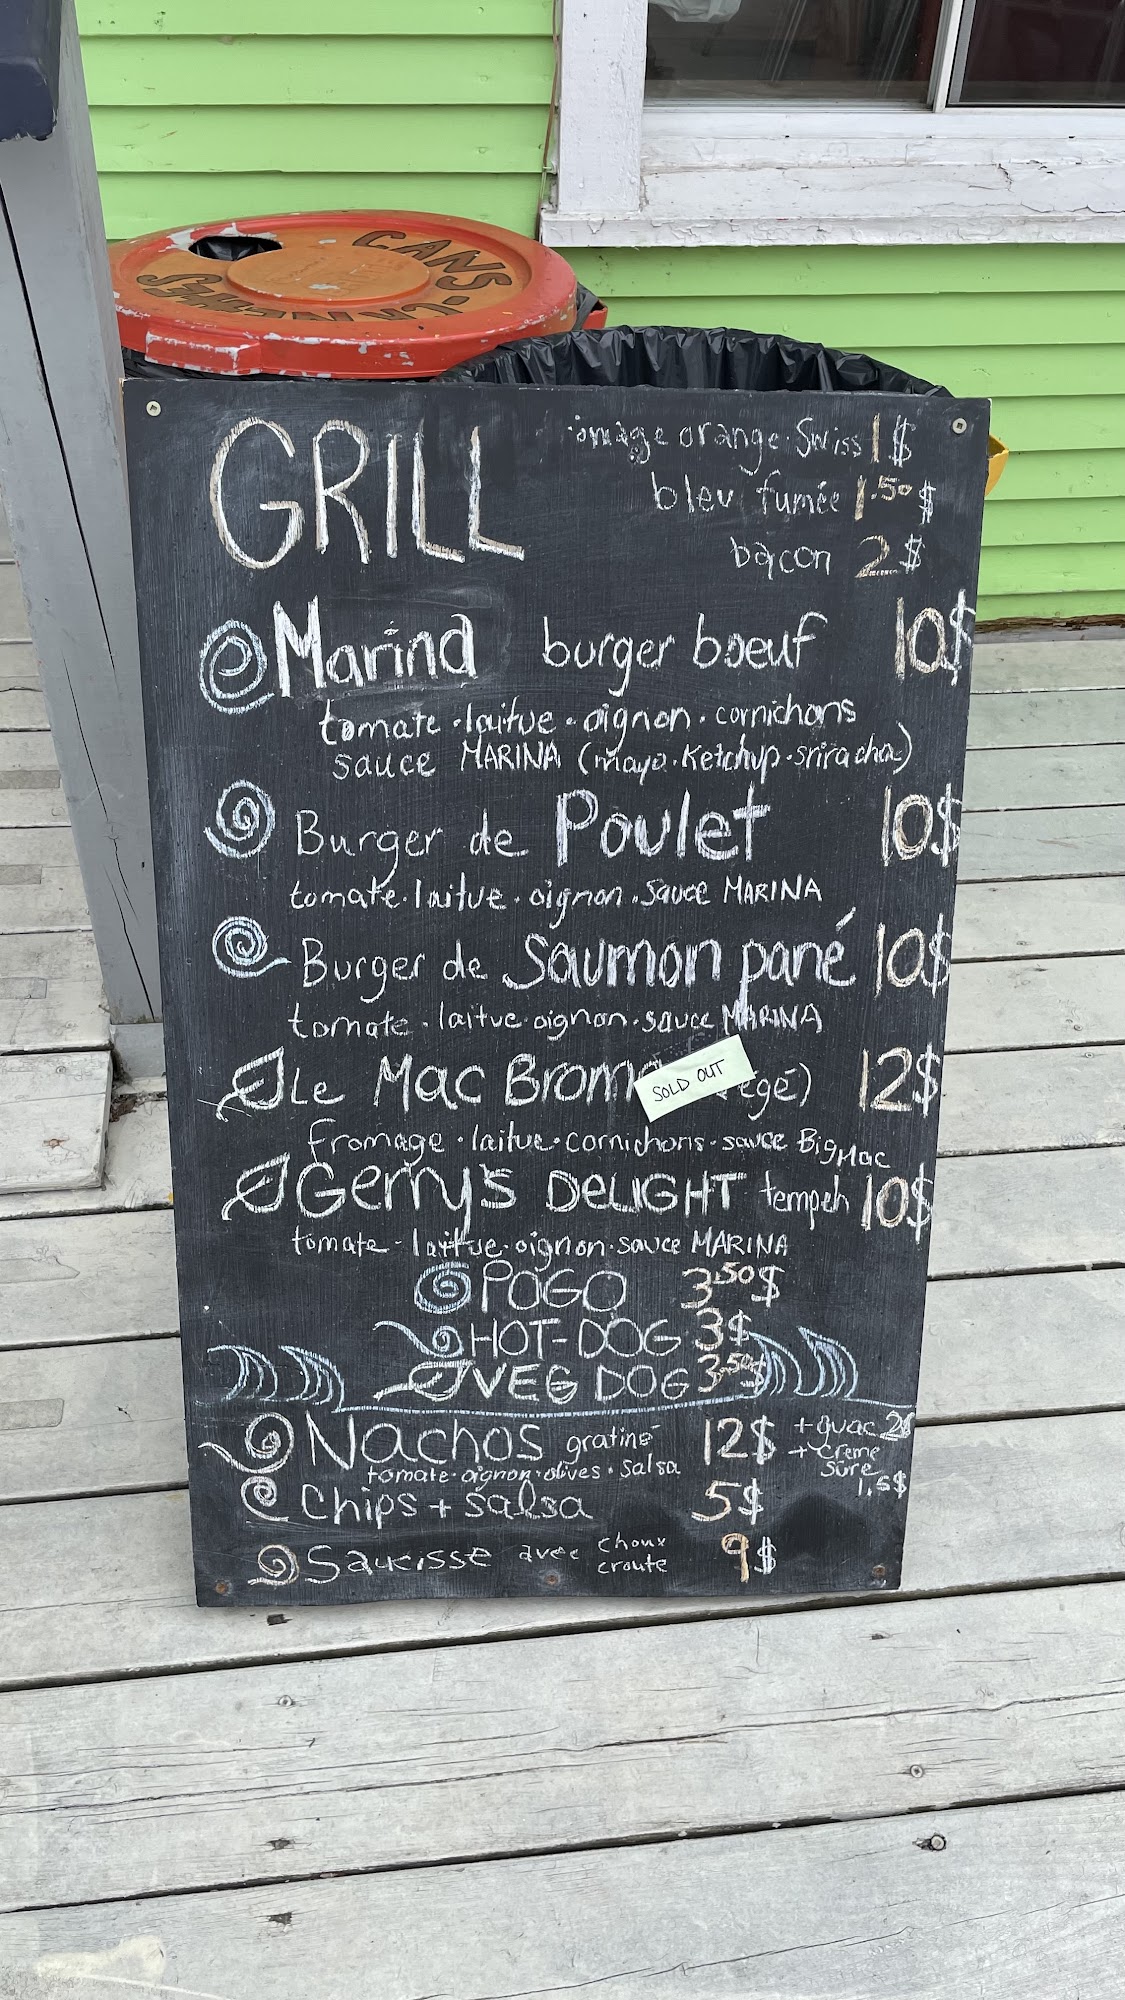 CANS.
GRILL
omage orange. Swiss 1$
bleu fumée 1.50$
bacon 2$
Marina burger boeuf 10$
tomate. laitue. oignon. cornichons
sauce MARINA (mayo. Ketchup. sriracha)
Burger de Poulet 10$
tomate. laitue. oignon. sauce MARINA
Burger de saumon pané 10$
tomate. laitue. oignon. sauce MARINA
SOLD OUT
Le Mac Brom égé) 12$
fromage. laitue. cornichons. sauce BigMac
Gerry's DELIGHT tempeh 10$
tomate - laitue. oignon. sauce MARINA
POGO 3.50$
HOT-DOG 3$
VEG DOG 3.50$
Nachos gratiné 12$ + guac 2$
tomate. oignon. olives. salsa + Creme sure 1.5$
Chips + salsa 5$
Saucisse avec choux croute 9$